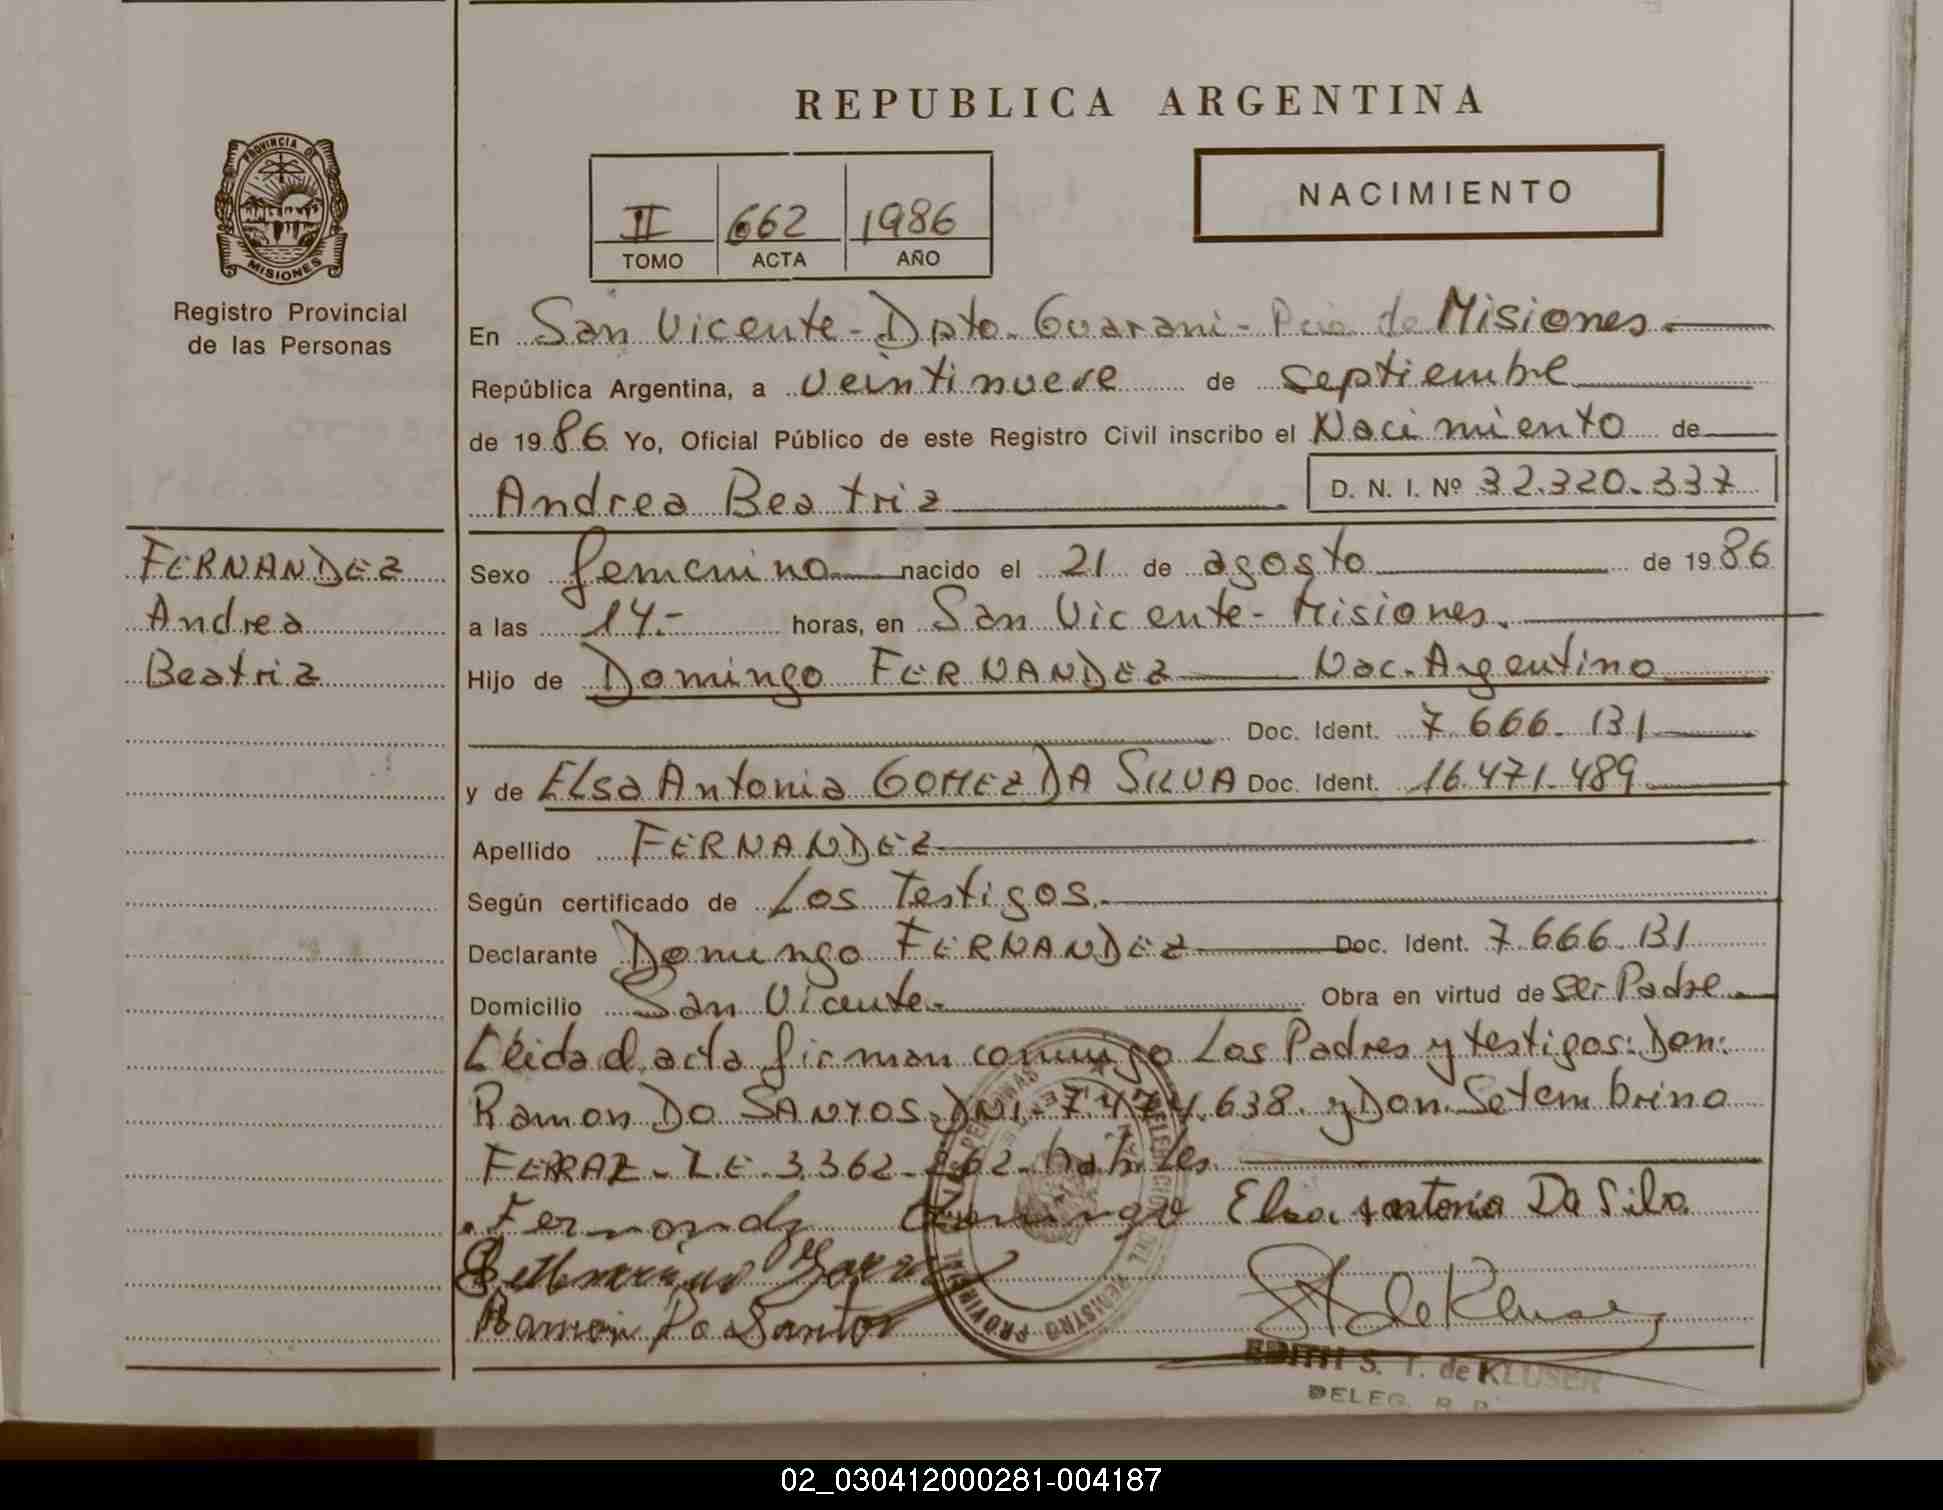 REPUBLICA ARGENTINA
PROVINCIA DE
MISIONES
Registro Provincial
de las Personas
II 662 1986
TOMO ACTA AÑO
NACIMIENTO
En San Vicente - Dpto. Guarani - Pcia de Misiones.
República Argentina, a veintinueve de septiembre
de 1986 Yo, Oficial Público de este Registro Civil inscribo el Nacimiento de
Andrea Beatriz D. N. I. Nº 32.320.337
FERNANDEZ
Andrea
Beatriz
Sexo femenino nacido el 21 de agosto de 1986
a las 14.- horas, en San Vicente - Misiones.
Hijo de Domingo FERNANDEZ Nac. Argentino
Doc. Ident. 7.666.131
y de Elsa Antonia GOMEZ DA SILVA Doc. Ident. 16.471.489
Apellido FERNANDEZ
Según certificado de Los Testigos.
Declarante Domingo FERNANDEZ Doc. Ident. 7.666.131
Domicilio San Vicente. Obra en virtud de ser Padre
Leida el acta firman conmigo Los Padres y testigos: Don:
Ramon DO SANTOS. DNI. 7.474.638. y Don Setembrino
FERRAZ - LE 3.362. habiles.
Fernandz Domingo Elsa antonia Da Silva
Ramon Do Santos
S T de Kluser
EDITH S. T. de KLUSER
DELEG. R. P.
REGISTRO PROVINCIAL
02_030412000281-004187